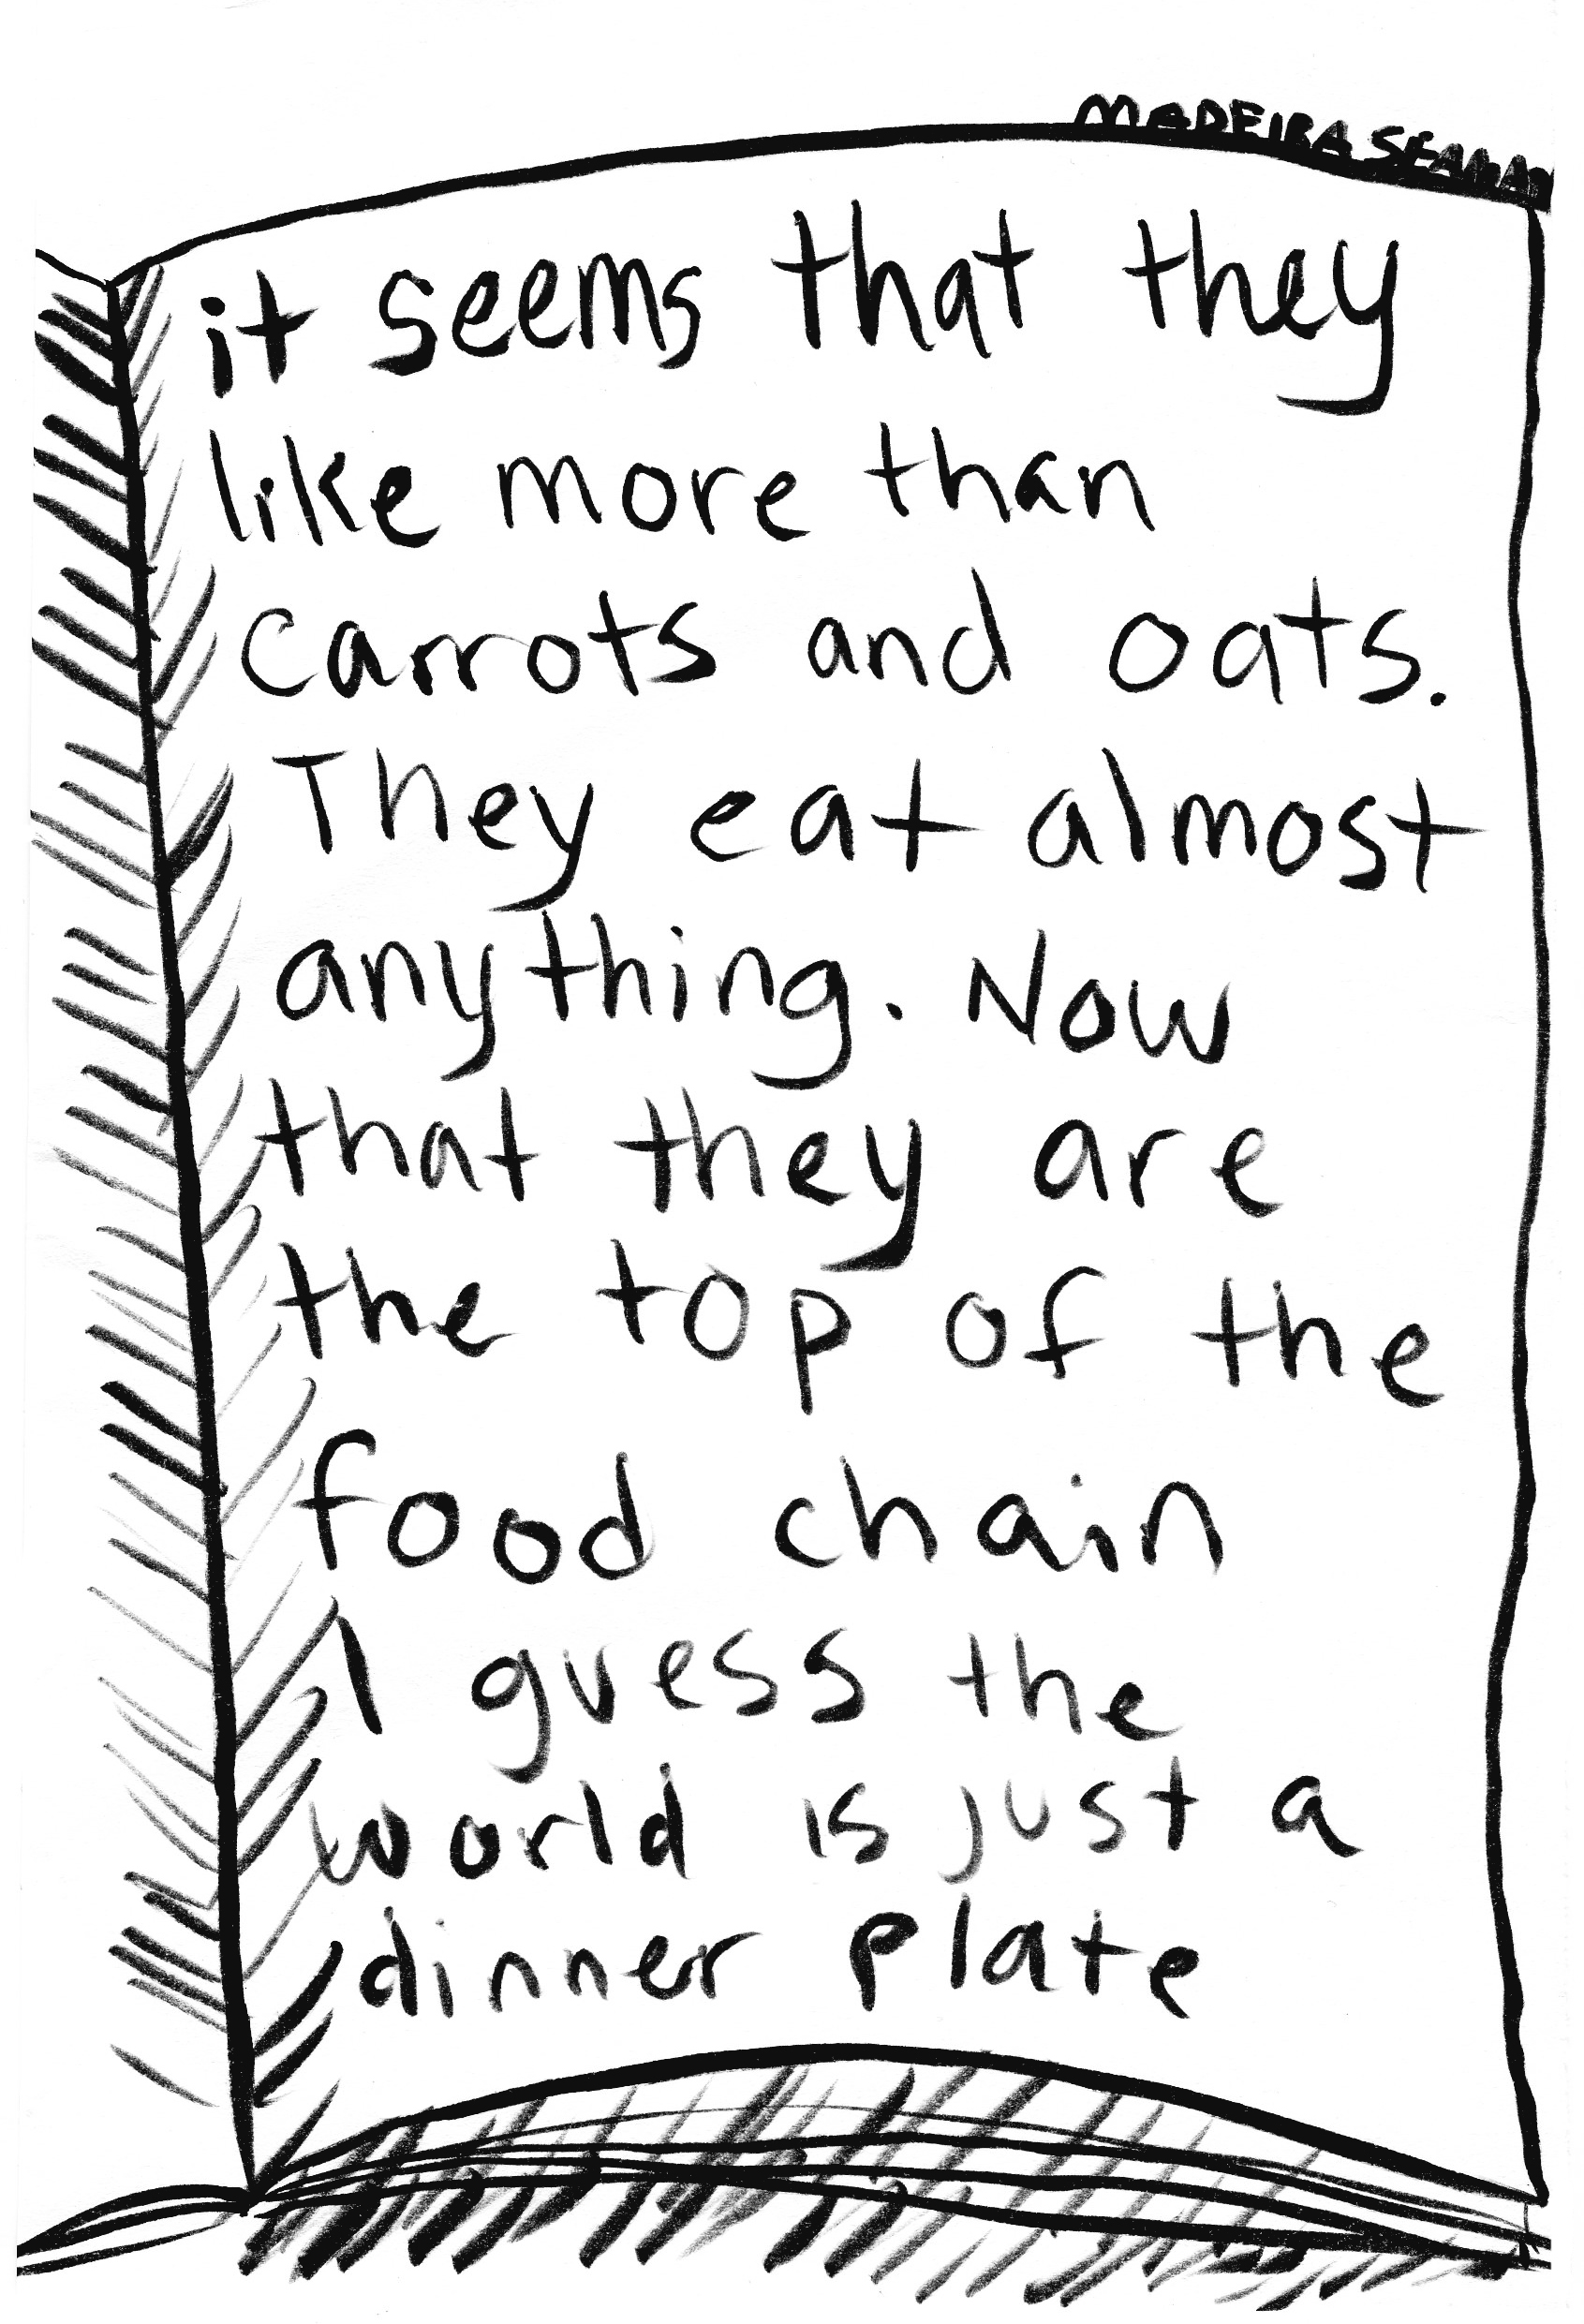 MADEIRA
it seems that they
like more than
carrots and oats.
They eat almost
anything. Now
that they are
the top of the
food chain
I guess the
world is just a
dinner plate